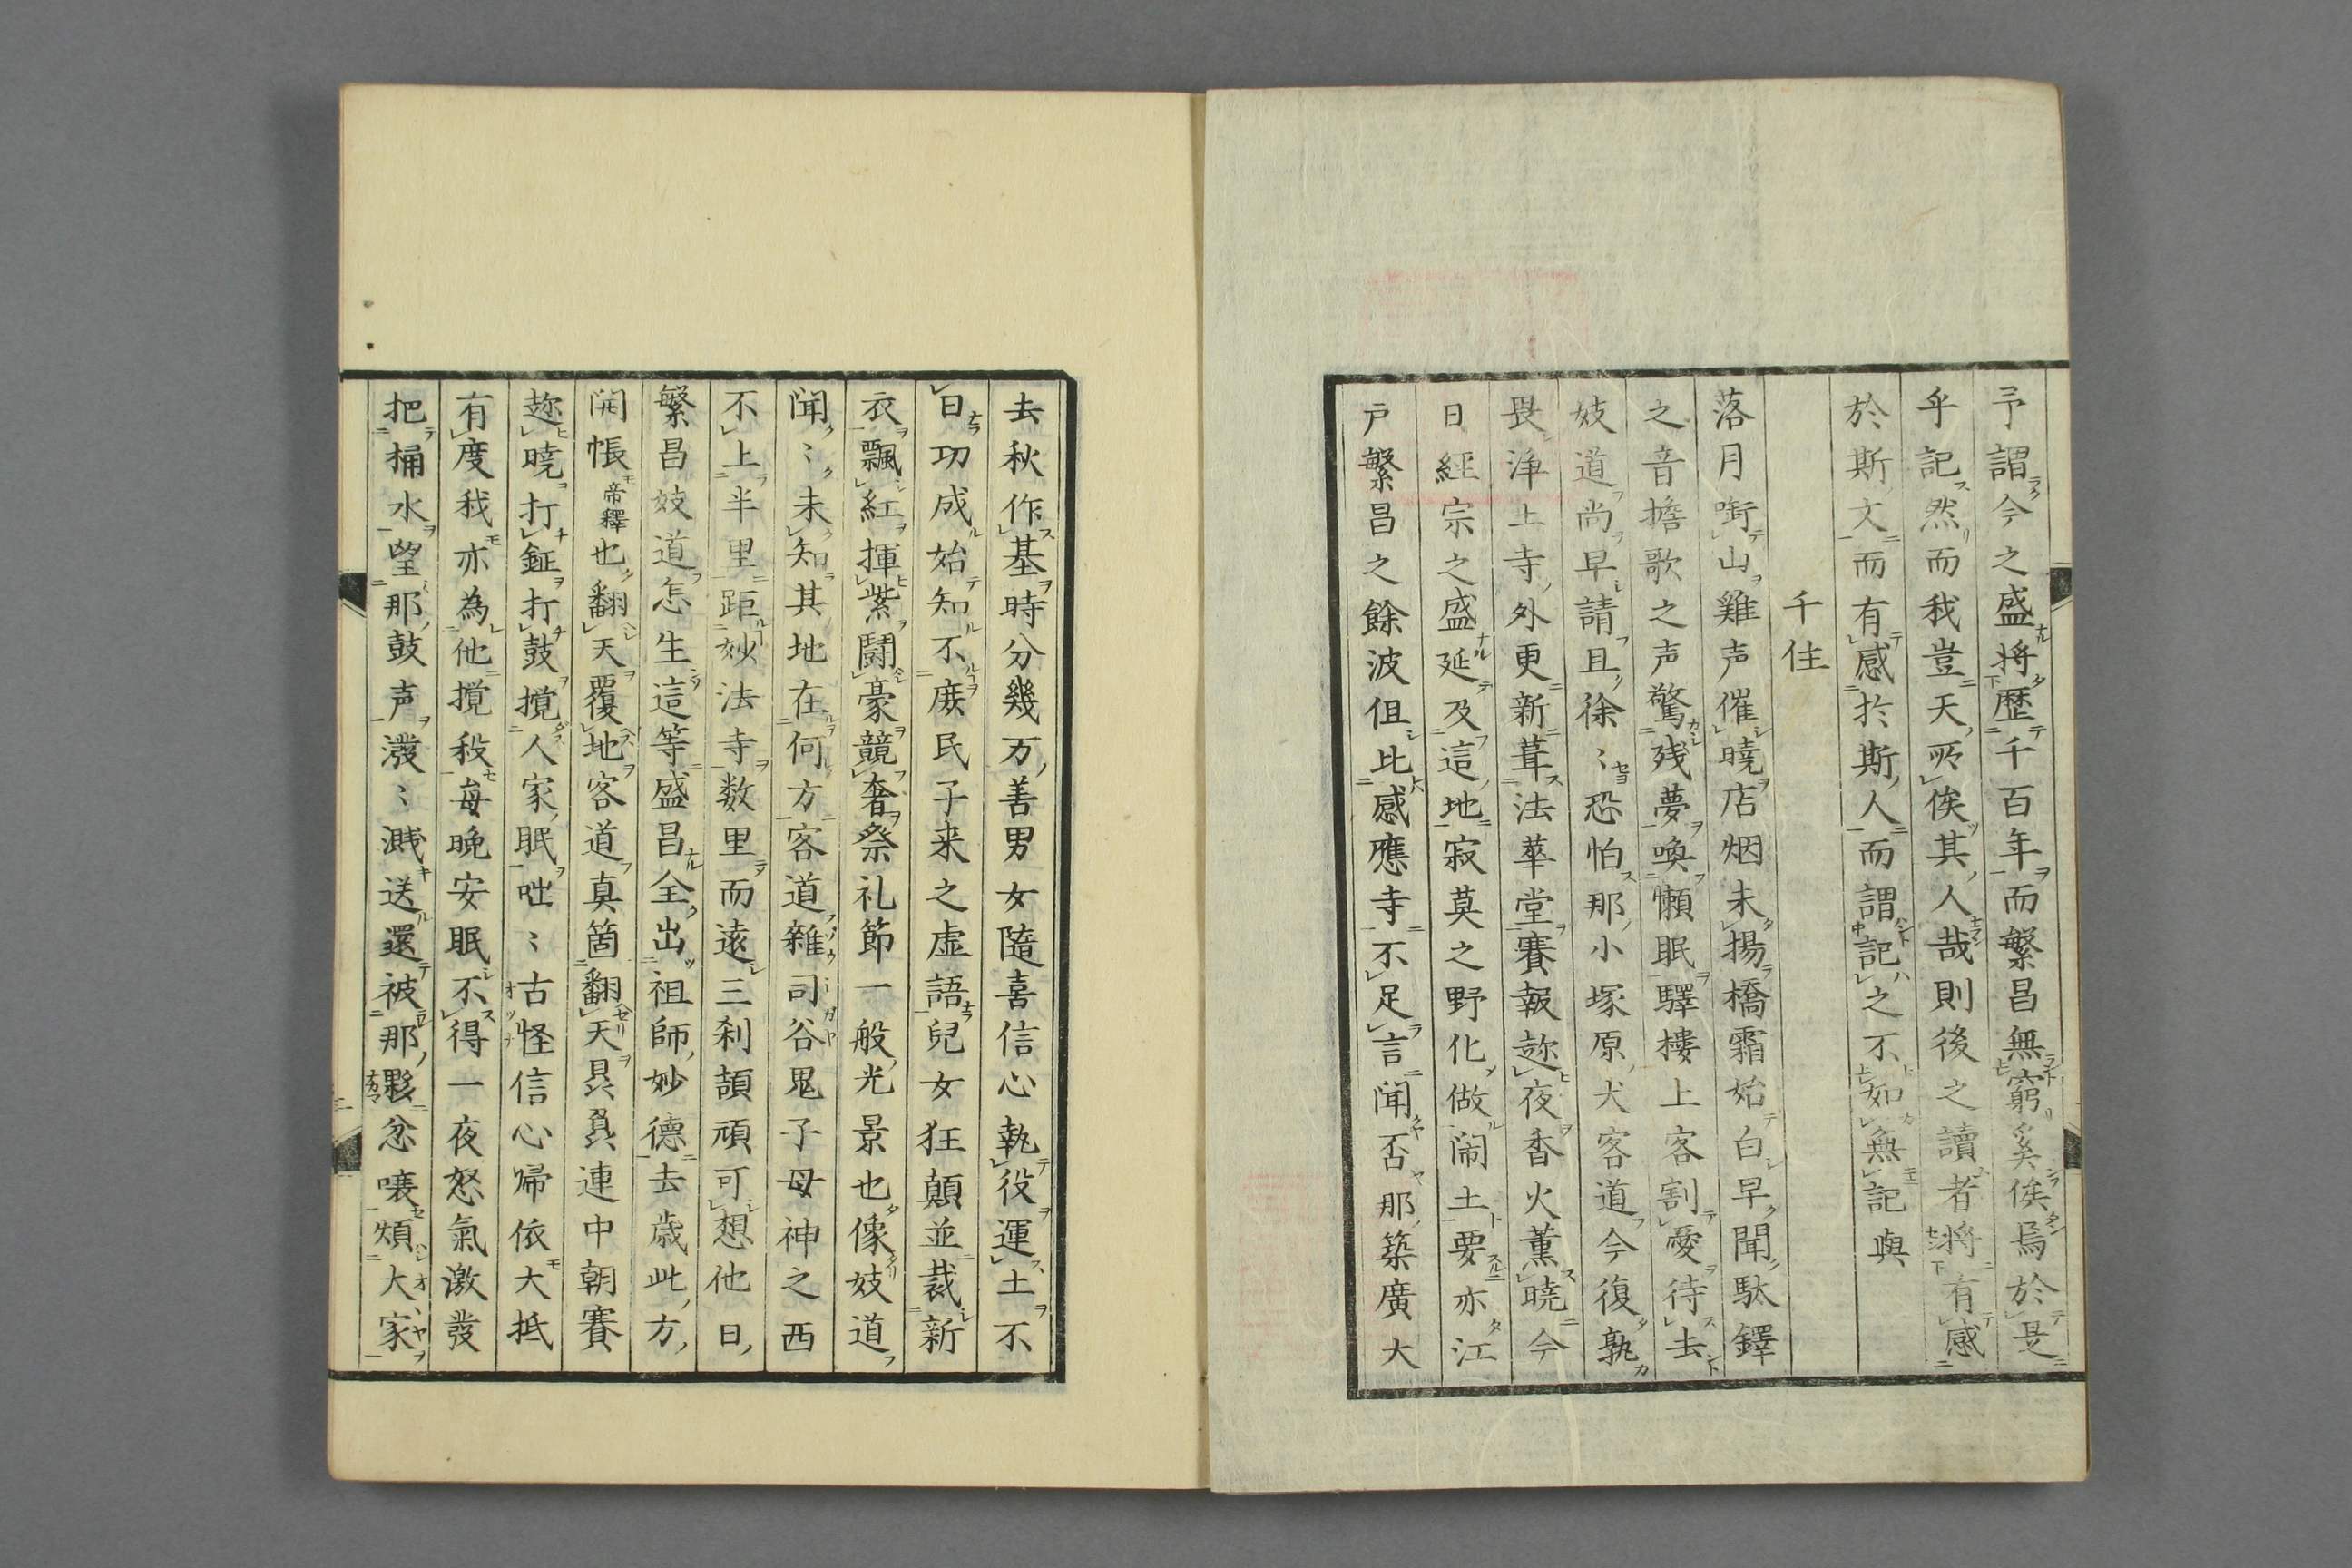 予謂今之盛将歴千百年而繁昌無窮奚俟烏於是
乎記然而我豈天所俟其人哉則後之讀者将有感
於斯文而有感於斯人而謂記之不如無記與
千住
落月啣山雞声催曉店烟未揚橋霜始白早聞駄鐸
之音擔歌之声驚残夢喚懶眠驛樓上客割愛待去
妓道尚早請且徐〻恐怕那小塚原犬客道今復孰
畏浄土寺外更新葺法華堂賽報趂夜香火薫曉今
日経宗之盛延及這地寂莫之野化做閙土要亦江
戸繁昌之餘波但比感應寺不足言聞否那築廣大
去秋作基時分幾万善男女隨喜信心執役運土不
日功成始知不庶民子来之虚語兒女狂顛並裁新
衣飄紅揮紫鬪豪競奢祭礼節一般光景也像妓道
聞〻未知其地在何方客道雜司谷鬼子母神之西
不上半里距妙法寺数里而遠三刹頡頏可想他日
繁昌妓道怎生這等盛昌全出祖師妙德去歳此方
開帳帝釋也翻天覆地客道真箇翻天昃昃連中朝賽
趂曉打鉦打鼓攪人家眠咄〻古怪信心帰依大抵
有度我亦為他攪殺毎晩安眠不得一夜怒氣激發
把桶水望那鼓声潑〻濺送還被那夥忿嚷煩大家